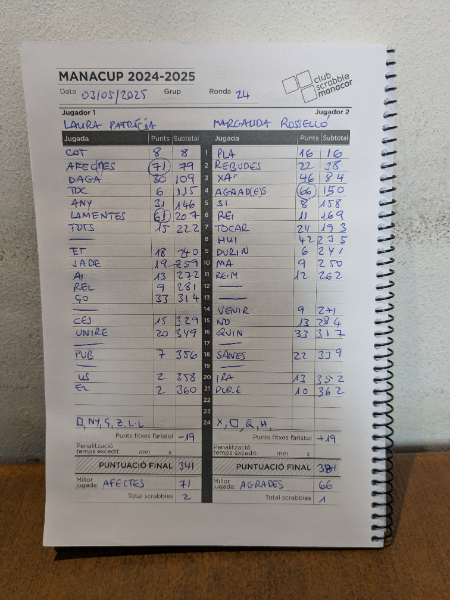 MANACUP 2024-2025
club scrabble manacor
Data 03/05/2025 Grup Ronda 24
Jugador 1 Jugador 2
LAURA MARGALIDA ROSSELLÓ
Jugada Punts Subtotal Jugada Punts Subtotal
COT 8 8 1 PLA 16 16
AFECTES 71 79 2 REBUDES 22 38
DAGA 30 109 3 XAI 46 84
TOC 6 115 4 66 150
ANY 31 146 5 SI 8 158
LAMENTES 61 207 6 REI 11 169
TOTS 15 222 7 TOCAR 24 193
8 HUI 42 235
ET 18 240 9 DURIN 6 241
JADE 19 259 10 MA 9 250
AI 13 272 11 REIM 12 262
REL 9 281 12
GO 33 314 13
14 VENIR 9 271
CES 15 329 15 NO 13 284
UNIRE 20 349 16 QUIN 33 317
17
PUB 7 356 18 SANES 22 339
19
US 2 358 20 IRA 13 352
EL 2 360 21 DURE 10 362
22
23
□, NY, Ç, Z, L·L 24 X, □, Q, H,
Punts fitxes faristol -19 Punts fitxes faristol +19
Penalització temps excedit min x Penalització temps excedit min x
PUNTUACIÓ FINAL 341 PUNTUACIÓ FINAL 381
Millor jugada AFECTES 71 Millor jugada AGRADES 66
Total scrabbles 2 Total scrabbles 1